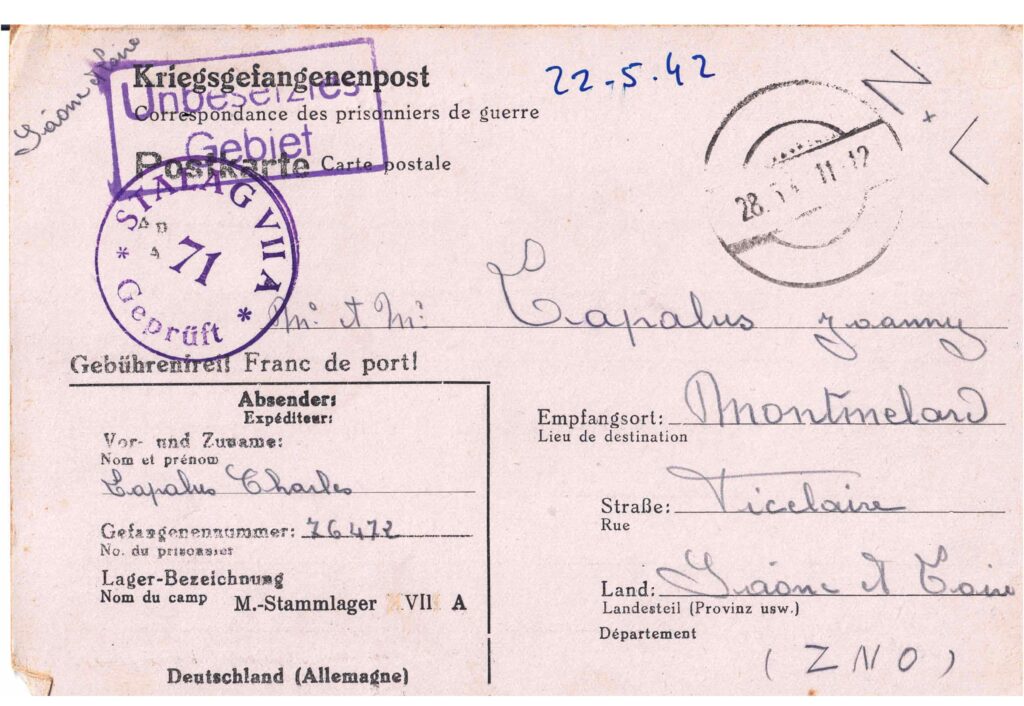 Saône et Loire
Kriegsgefangenenpost
22-5.42
Correspondance des prisonniers de guerre
Unbesetztes
Gebiet
Postkarte Carte postale
28. 11-12
STALAG VII A
71
Geprüft
Mr et Me Lapalus Joanny
Gebührenfrei! Franc de port!
Absender:
Expéditeur:
Vor- und Zuname:
Nom et prénom
Lapalus Charles
Gefangenennummer: 76472
No. du prisonnier
Lager-Bezeichnung
Nom du camp M.-Stammlager VII A
Deutschland (Allemagne)
Empfangsort: Montmelard
Lieu de destination
Straße:
Rue
Land: Saône et Loire
Landesteil (Provinz usw.)
Département
(ZNO)